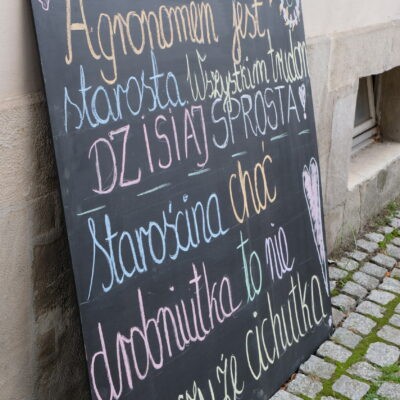 Agronomem jest
starosta Wszystkim trudom
DZISIAJ SPROSTA!
Starościna choć
drobniutka to nie
że cichutka